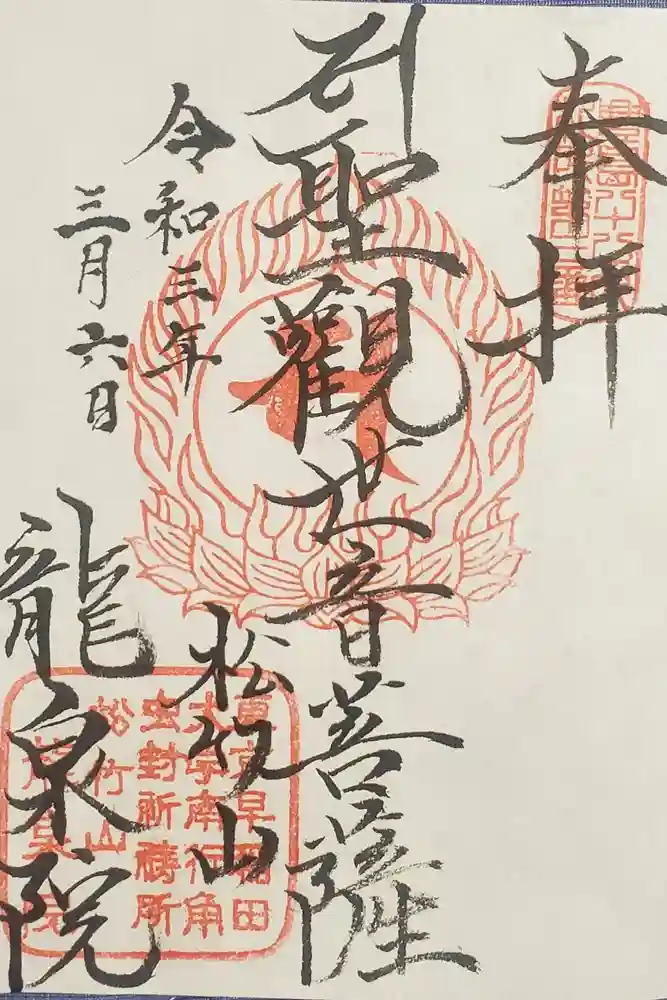 奉拝
聖觀世音菩薩
松竹山
令和三年
三月六日
龍泉院
東京早稲田
大学南行角
虫封祈禱所
松竹山
龍泉院